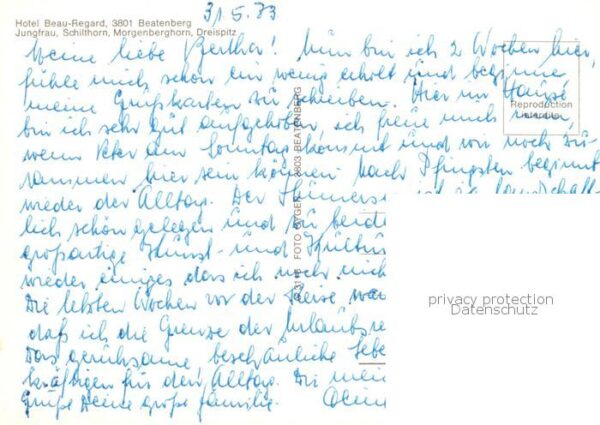 31.5.83
Hotel Beau-Regard, 3801 Beatenberg
Jungfrau, Schilthorn, Morgenberghorn, Dreispitz
Meine liebe Bertha! Nun bin ich 2 Wochen hier,
fühle mich schon ein wenig erholt und beginne
meine Grußkarten zu schreiben. Hier im Hause
bin ich sehr gut aufgehoben, ich freue mich nun,
wenn Peter am Sonntag kommt und wir noch zu-
sammen hier sein können. Nach Pfingsten beginnt
wieder der Alltag. Der ist ja landschaft-
lich schön gelegen und zu
großartige Kunst- und Kultur
wieder einiges das ich noch nich
Die letzten Wochen vor der Reise war
daß ich die Grenze der Urlaubsre
Das geruhsame beschauliche Lebe
kräftigen für den Alltag. Die
Grüße Deine große Familie. Deine
Reproduction
interdite
FOTO GYGER 3803 BEATENBERG
privacy protection
Datenschutz